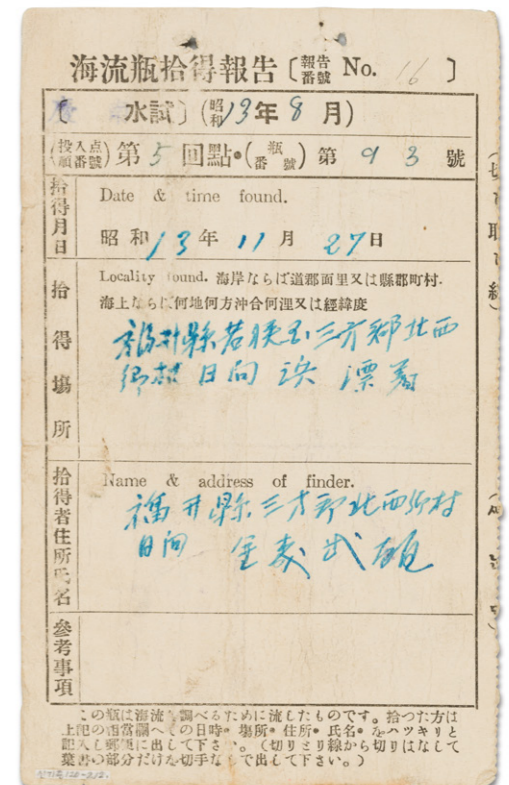 海流瓶拾得報告〔報告番號 No. 16〕
水試〕(昭和13年8月)
(投入点順番號) 第5回點・(瓶番號) 第93號
拾得月日
Date & time found.
昭和13年11月27日
拾得場所
Locality found. 海岸ならば道郡面里又は縣郡町村.
海上ならば何地何方沖合何浬又は經緯度
福井縣若狹国三方郡北西
郷村日向 漂着
拾得者住所氏名
Name & address of finder.
福井縣三方郡北西郷村
日向 武雄
參考事項
この瓶は海流を調べるために流したものです。拾つた方は
上記の相當欄へその日時・場所・住所・氏名・をハツキリと
記入し郵便に出して下さい。(切りとり線から切りはなして
葉書の部分だけを切手なしで出して下さい。)
(切り取り線)